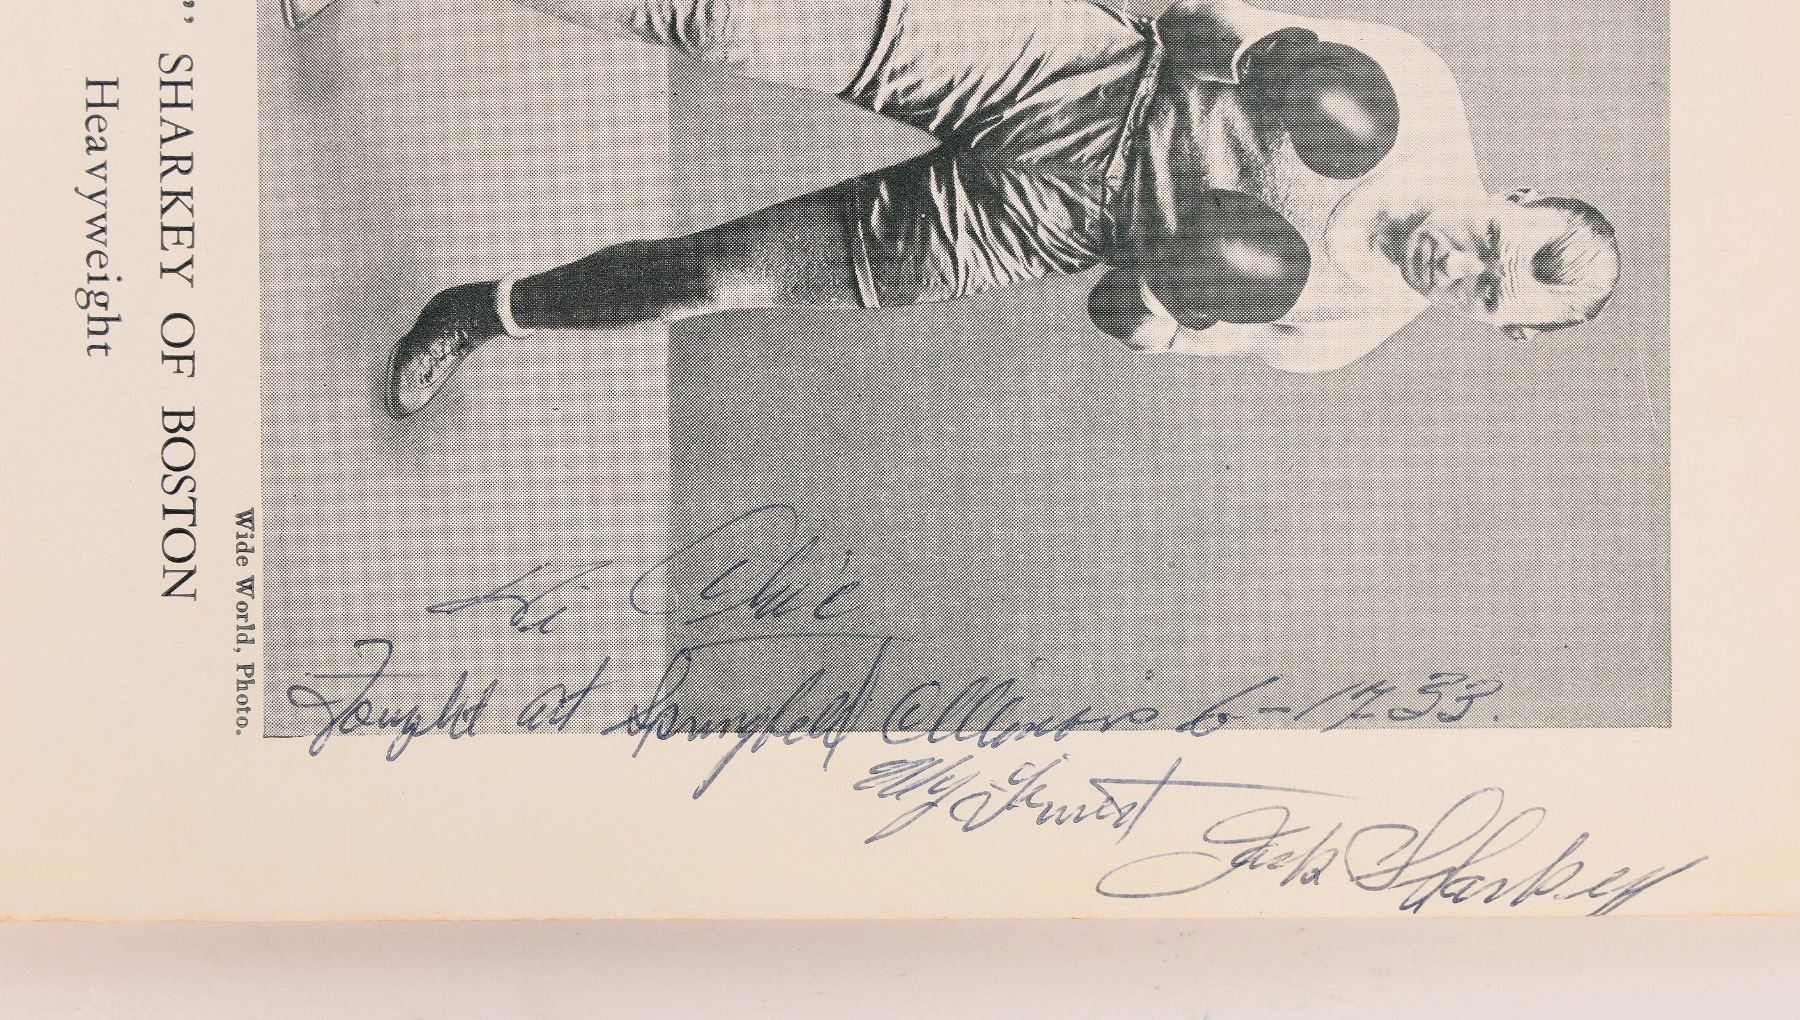 ” SHARKEY OF BOSTON
Heavyweight
Wide World, Photo.
Hi Chic
Fought at Springfield Illinois 6-17-33.
My Finest
Jack Sharkey